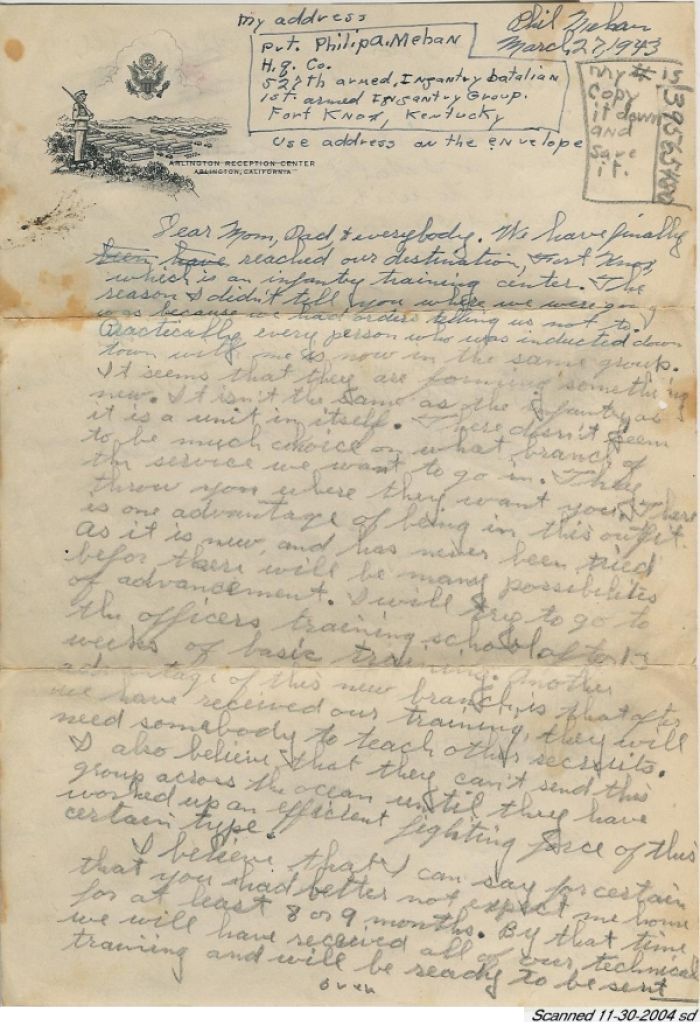 my address
Phil Mehan
March 27, 1943
Pvt. Philip A. Mehan
H.q. Co.
527th armed, Infantry batalian
1st. armed Infantry Group.
Fort Knox, Kentucky
use address on the envelope
my # is
copy
it down
and
save
it.
ARLINGTON RECEPTION CENTER
ARLINGTON, CALIFORNIA
Dear Mom, Dad, & everybody. We have finally
been have reached our destination, Fort Knox
which is an infantry training center. The
reason I didn't tell you where we were going
was because we had orders telling us not to.
Practically every person who was inducted down
town with me is now in the same group.
It seems that they are forming something
new. It isn't the same as the infantry as
it is a unit in itself. There disn't seem
to be much choice on what branch of
the service we want to go in. They
throw you where they want you. There
is one advantage of being in this outfit.
As it is new, and has never been tried
befor there will be many possibilites
of advancement. I will try to go to
the officers training school after 13
weeks of basic training. Another
advantage of this new branch is that after
we have received our training, they will
need somebody to teach other recruits.
I also believe that they can't send this
group across the ocean until they have
worked up an efficient fighting force of this
certain type.
I believe that I can say for certain
that you had better not expect me home
for at least 8 or 9 months. By that time
we will have received all of our technical
training and will be ready to be sent
over
Scanned 11-30-2004 sd